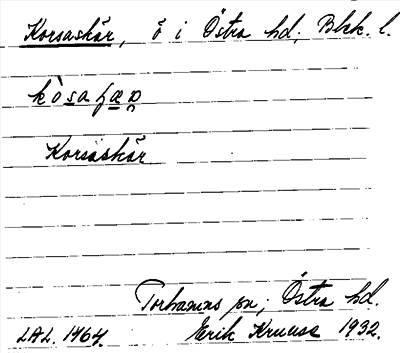 Korsaskär, ö i Östra hd, Blek. l.
Korsaskär
Torhamns sn; Östra hd.
LAL. 1464. Erik Kruuse 1932.